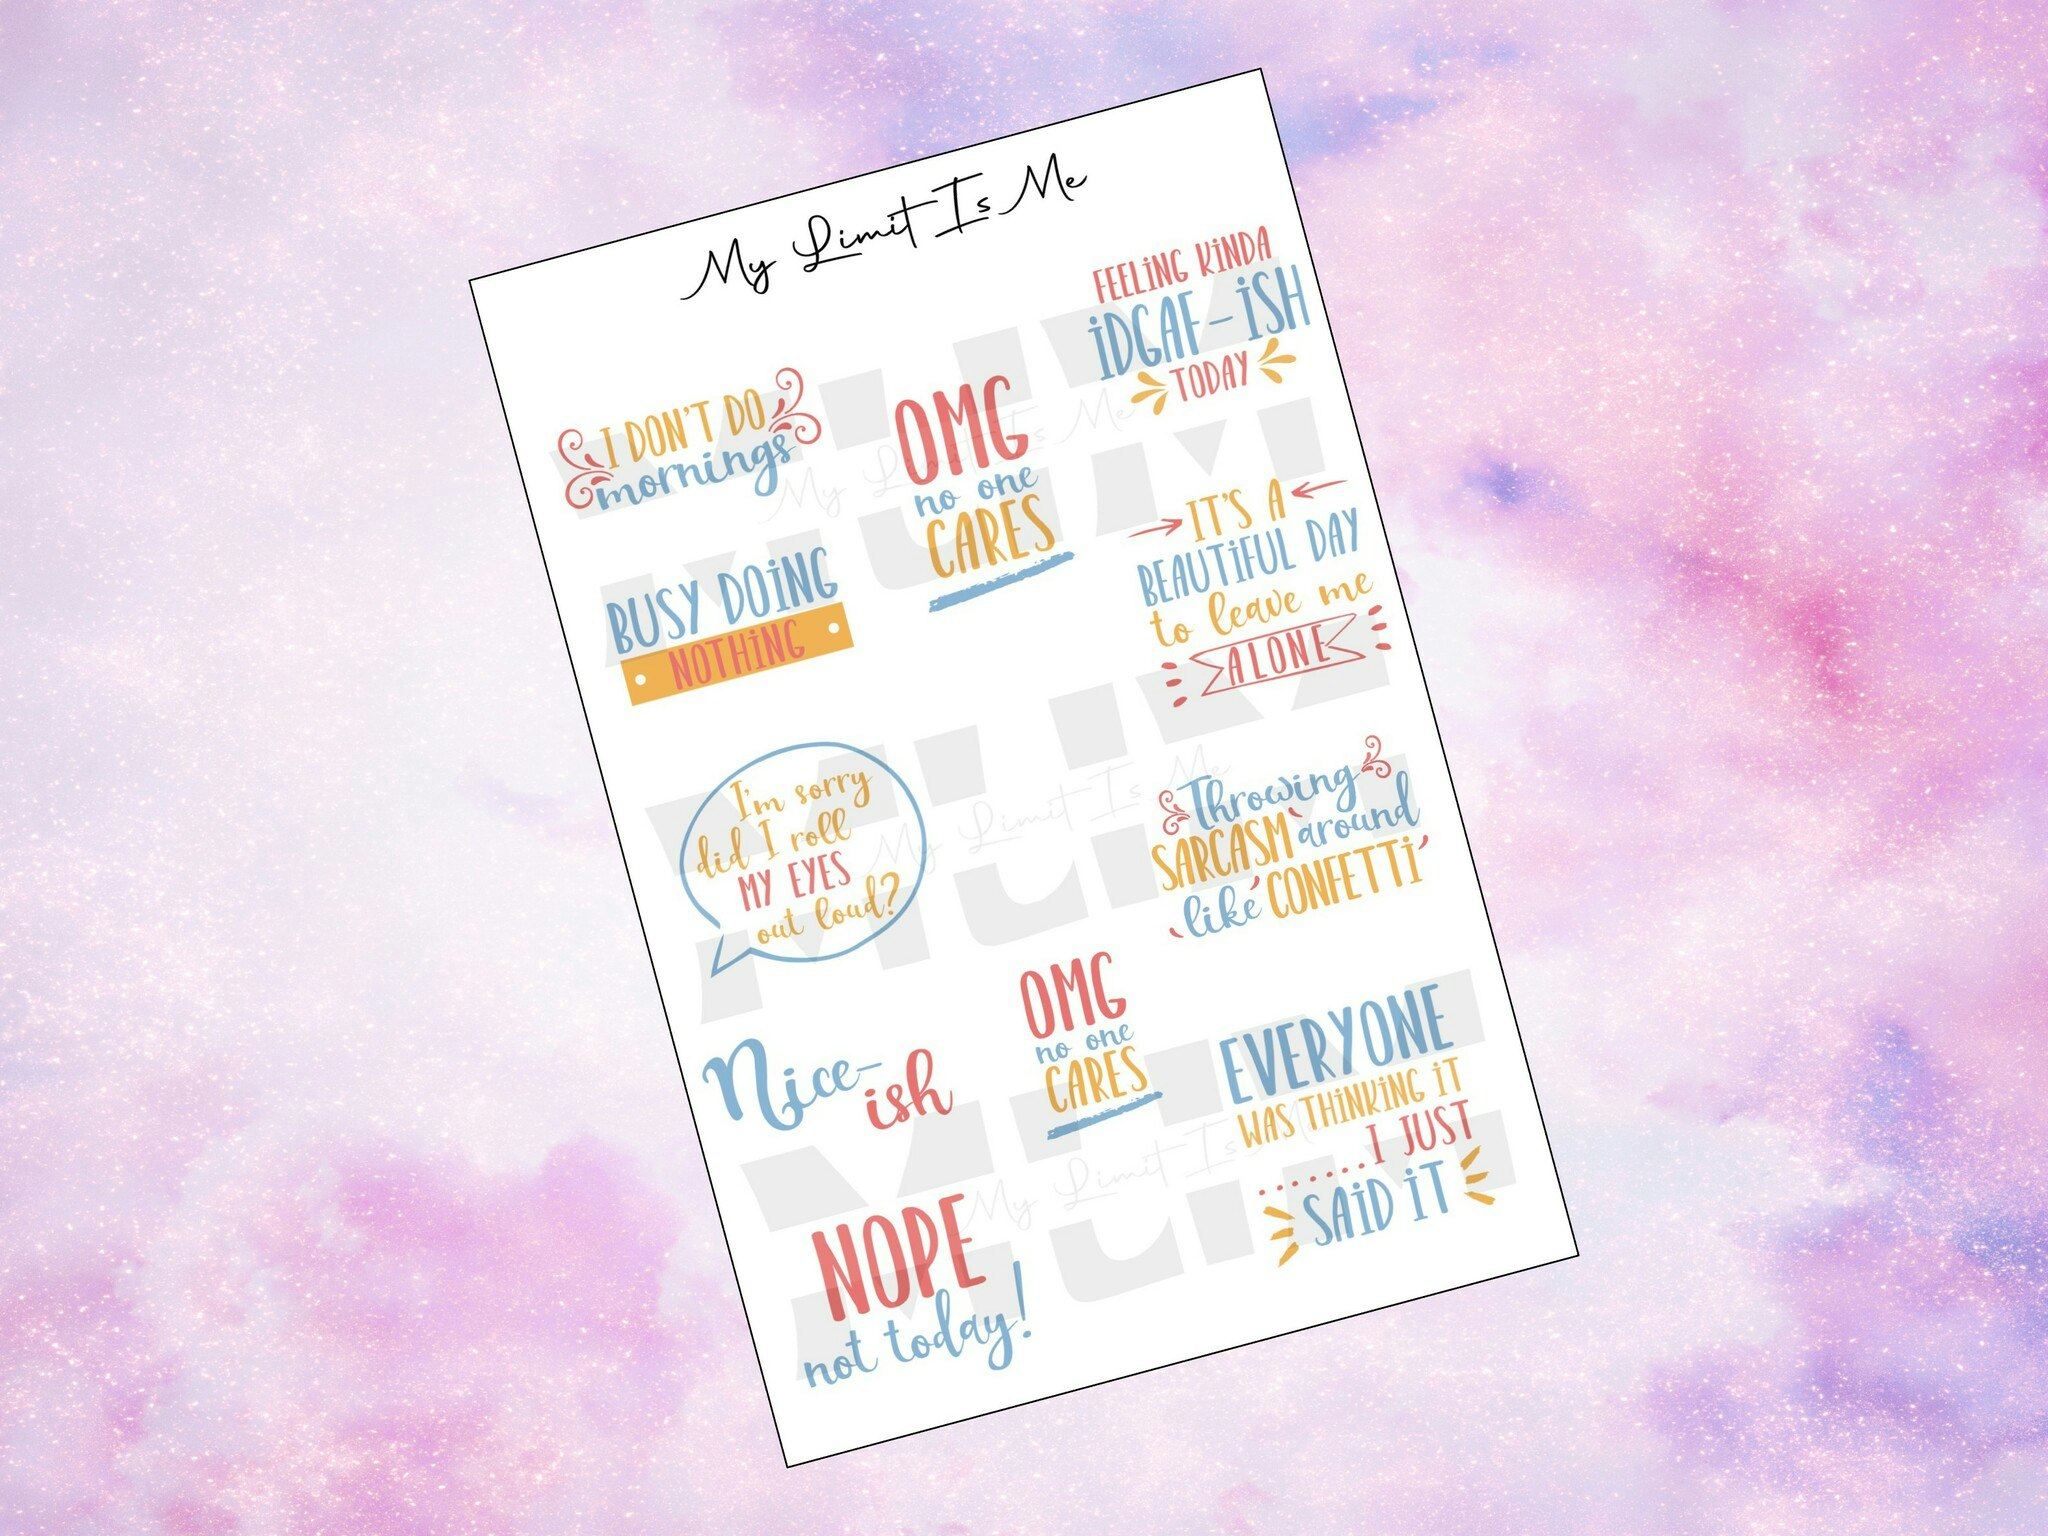 My Limit Is Me
FEELING KINDA
iDGAF-iSH
TODAY
I DON'T DO
mornings
OMG
no one
CARES
IT'S A
BEAUTIFUL DAY
to leave me
ALONE
BUSY DOING
NOTHING
I'm sorry
did I roll
MY EYES
out loud?
Throwing
SARCASM around
like CONFETTI
Nice-
ish
OMG
no one
CARES
EVERYONE
WAS THINKING IT
.......I JUST
SAID IT
NOPE
not today!
My Limit Is Me
My Limit Is Me
My Limit Is Me